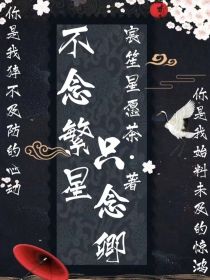 你是我始料未及的惊鸿
宸笙星愿茶·著
不念繁星
只念卿
你是我猝不及防的心动